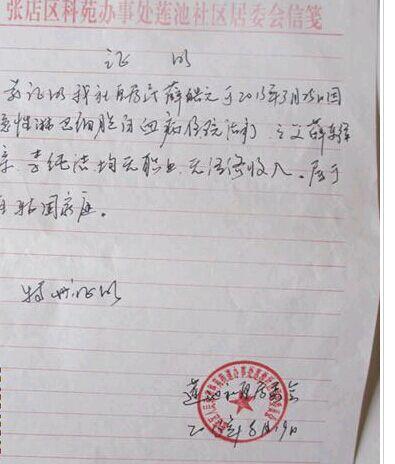 张店区科苑办事处莲池社区居委会信笺
证明
兹证明我社区居民薛皓元于2015年3月25日因
急性淋巴细胞白血病住院治疗，之父薛
亲 李纯洁 均无职业 无经济收入。属于
困家庭。
特此证明
莲池社区居委会
二〇15年6月19日